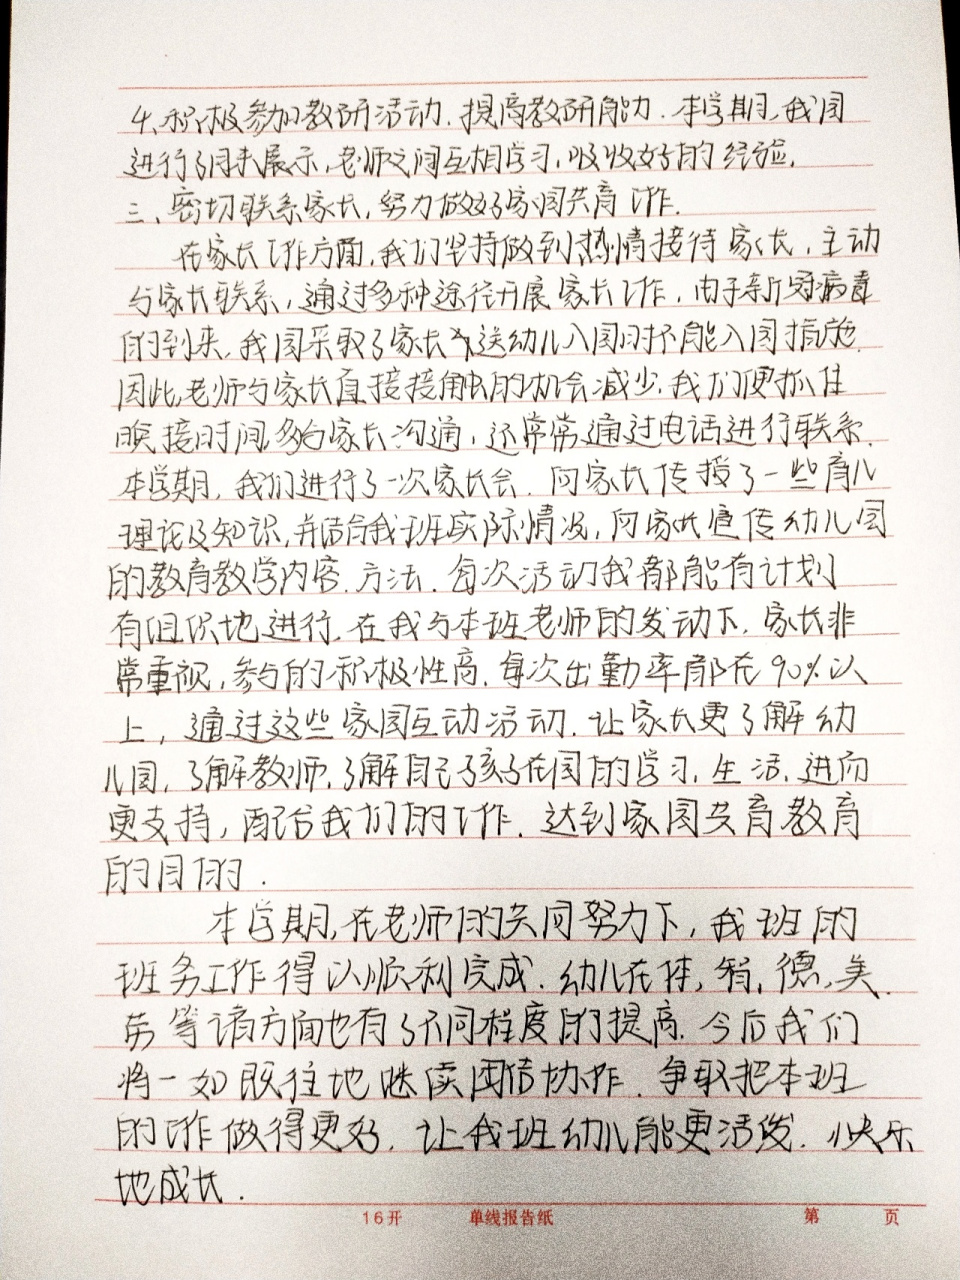 4、积极参加教研活动.提高教研能力.本学期,我园
进行了周末展示,老师之间互相学习,吸收好的经验.
三、密切联系家长,努力做好家园共育工作.
在家长工作方面,我们坚持做到热情接待家长,主动
与家长联系,通过多种途径开展家长工作,由于新冠病毒
的到来,我园采取了家长送幼儿入园时不能入园措施
因此,老师与家长直接接触的机会减少,我们便抓住
晚接时间多给家长沟通,还常常通过电话进行联系.
本学期,我们进行了一次家长会.向家长传授了一些育儿
理论及知识,并结合我班实际情况,向家长宣传幼儿园
的教育教学内容.方法.每次活动我都能有计划
有组织地进行.在我与本班老师的发动下.家长非
常重视,参与的积极性高.每次出勤率都在90%以
上,通过这些家园互动活动.让家长更了解幼
儿园,了解教师,了解自己孩子在园的学习.生活.进而
更支持,配合我们的工作.达到家园共育教育
的目的.
本学期,在老师的共同努力下,我班的
班务工作得以顺利完成.幼儿在体,智,德,美.
劳等诸方面也有了不同程度的提高.今后我们
将一如既往地继续团结协作.争取把本班
的工作做得更好.让我班幼儿能更活泼.快乐
地成长.
16开 单线报告纸 第 页